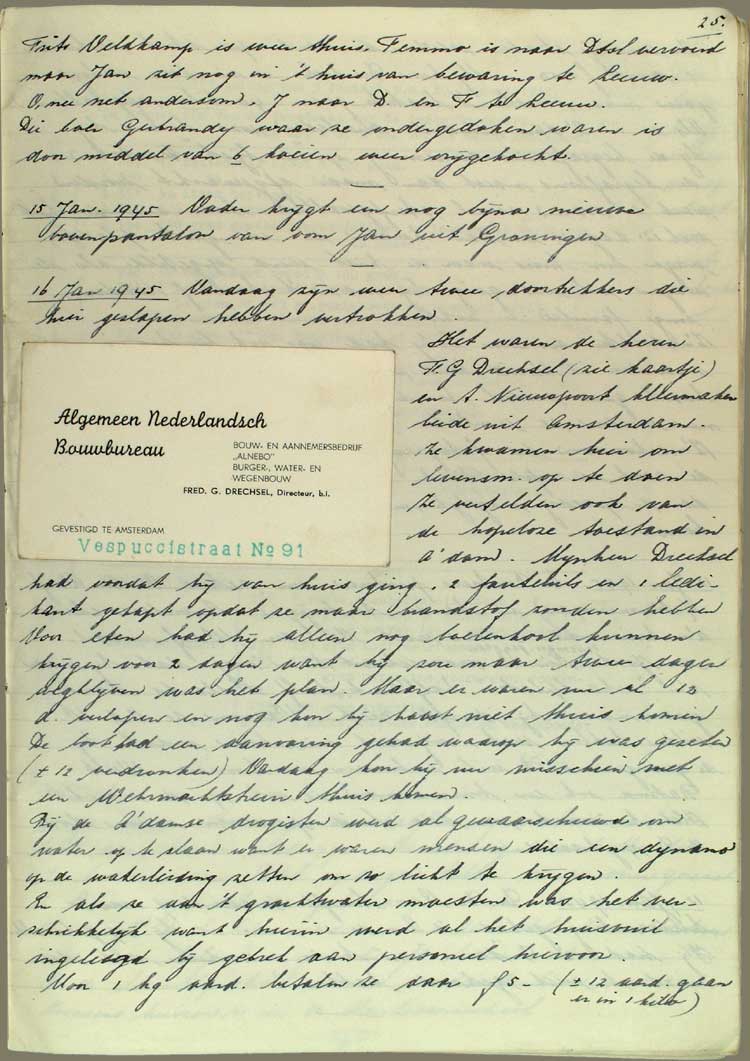 25.
Frits Veldkamp is weer thuis. Femmo is naar Dtsl vervoerd
maar Jan zit nog in 't huis van bewaring te Leeuw.
O, nee net andersom. J naar D. en F te Leeuw.
Die boer Gerbrandy waar ze ondergedoken waren is
door middel van 6 koeien weer vrijgekocht.
15 Jan. 1945 Vader krijgt een nog bijna nieuwe
bovenpantalon van oom Jan uit Groningen
16 Jan 1945 Vandaag zijn weer twee doortrekkers die
hier geslapen hebben vertrokken.
Het waren de heren
F. G Drechsel (zie kaartje)
en A. Nieuwpoort kleermaker
beide uit Amsterdam.
Ze kwamen hier om
levensm. op te doen
Ze vertelden ook van
de hopeloze toestand in
A'dam. Mynheer Drechsel
Algemeen Nederlandsch
Bouwbureau
BOUW- EN AANNEMERSBEDRIJF
„ALNEBO"
BURGER-, WATER- EN
WEGENBOUW
FRED. G. DRECHSEL, Directeur, b.i.
GEVESTIGD TE AMSTERDAM
Vespuccistraat No 91
had voordat hij van huis ging. 2 fauteuils en 1 ledi-
kant gekapt opdat ze maar brandstof zouden hebben
Voor eten had hij alleen nog boerenkool kunnen
krijgen voor 2 dagen want hij zou maar twee dagen
wegblijven was het plan. Maar er waren nu al 12
d. verlopen en nog kon hij haast niet thuis komen
De boot had een aanvaring gehad waarop hij was gezeten
(± 12 verdronken) Vandaag kon hij nu misschien met
een Wehrmachtstrein thuis komen.
Bij de A'damse drogisten werd al gewaarschuwd om
water op te slaan want er waren mensen die een dynamo
op de waterleiding zetten om zo licht te krijgen.
En als ze van 't grachtwater moesten was het ver-
schrikkelijk want hierin werd al het huisvuil
ingeleegd bij gebrek aan personeel hiervoor.
Voor 1 kg aard. betalen ze daar f 5- (± 12 aard. gaan
er in 1 kilo)